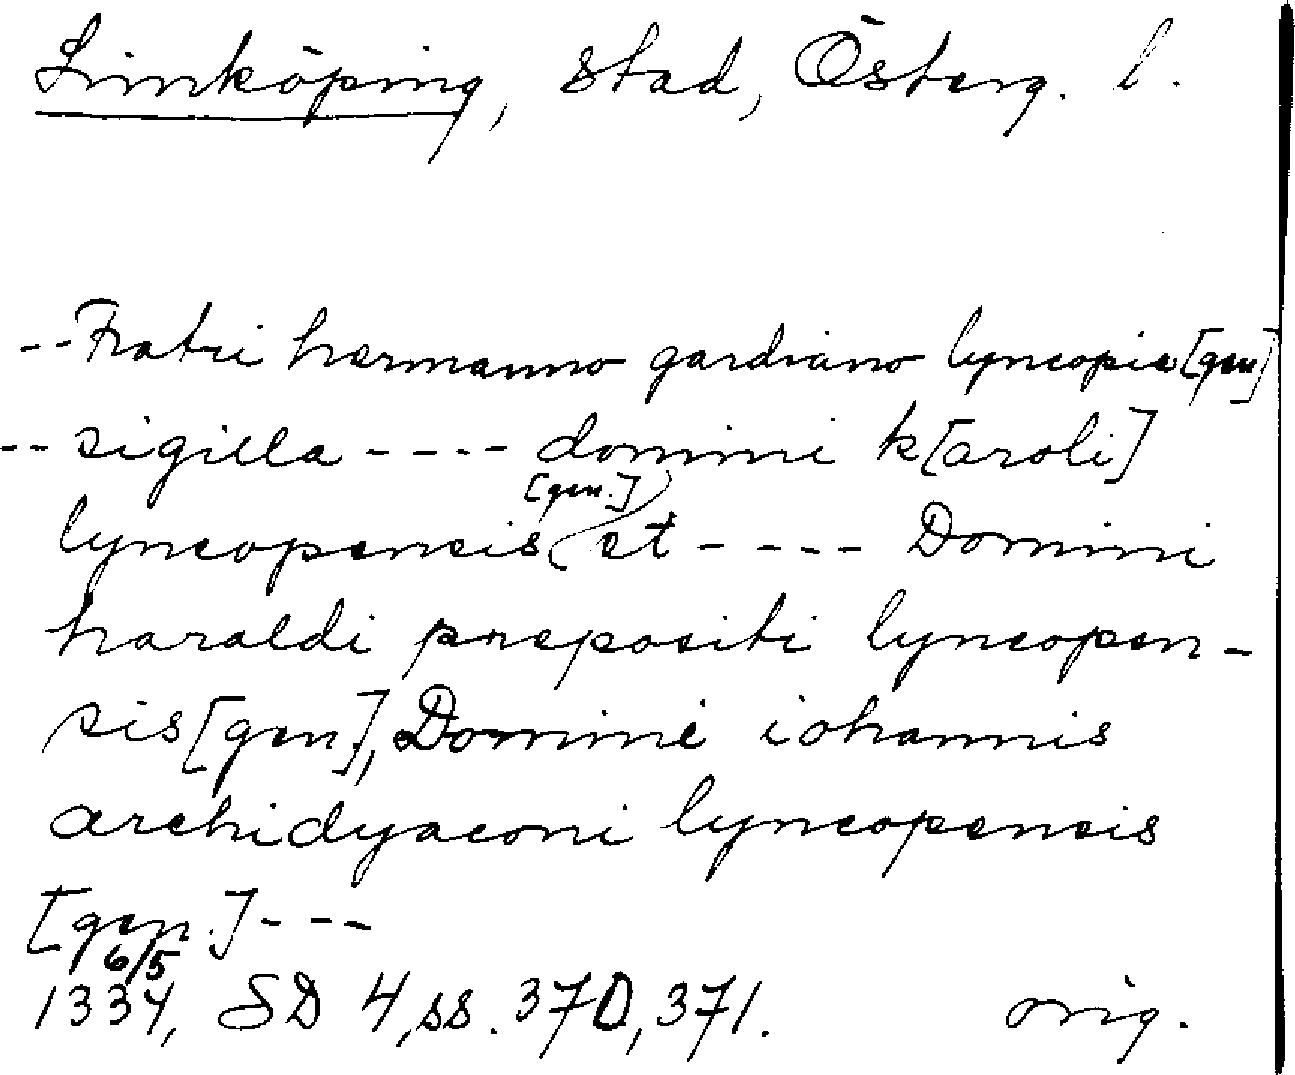 Linköping, stad, Österg. l.
-- Fratri hermanno gardiano lyncopie [gen]
-- sigilla ---- domini k[aroli]
[gen.]
lyncopensis et ---- Domini
haraldi prepositi lyncopen-
sis [gen], Domini iohannis
archidyaconi lyncopensis
[gen.] ---
6/5
1334, SD 4, ss. 370, 371. orig.